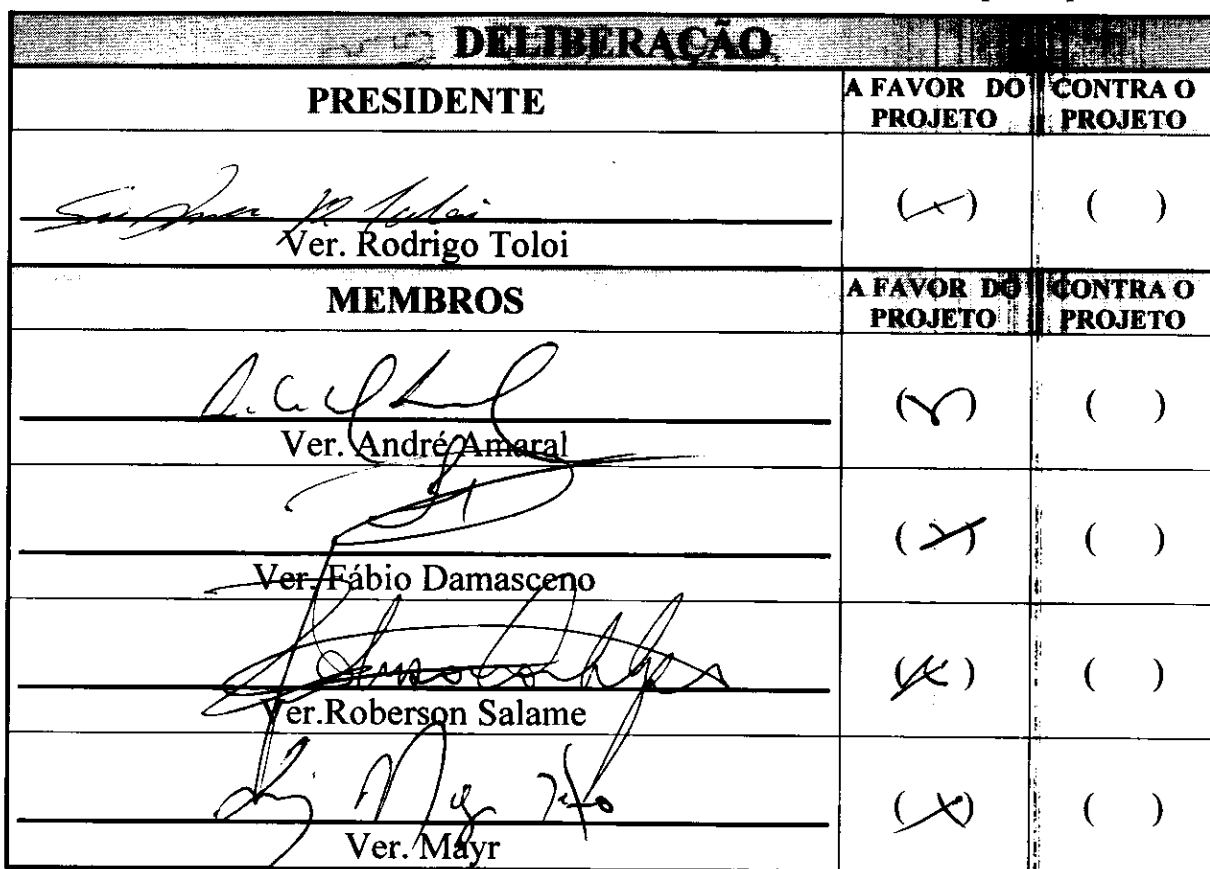 DELIBERAÇÃO
PRESIDENTE A FAVOR DO PROJETO CONTRA O PROJETO
( x ) ( )
Ver. Rodrigo Toloi
MEMBROS A FAVOR DO PROJETO CONTRA O PROJETO
( x ) ( )
Ver. André Amaral
( x ) ( )
Ver. Fábio Damasceno
( x ) ( )
Ver.Roberson Salame
( x ) ( )
Ver. Mayr